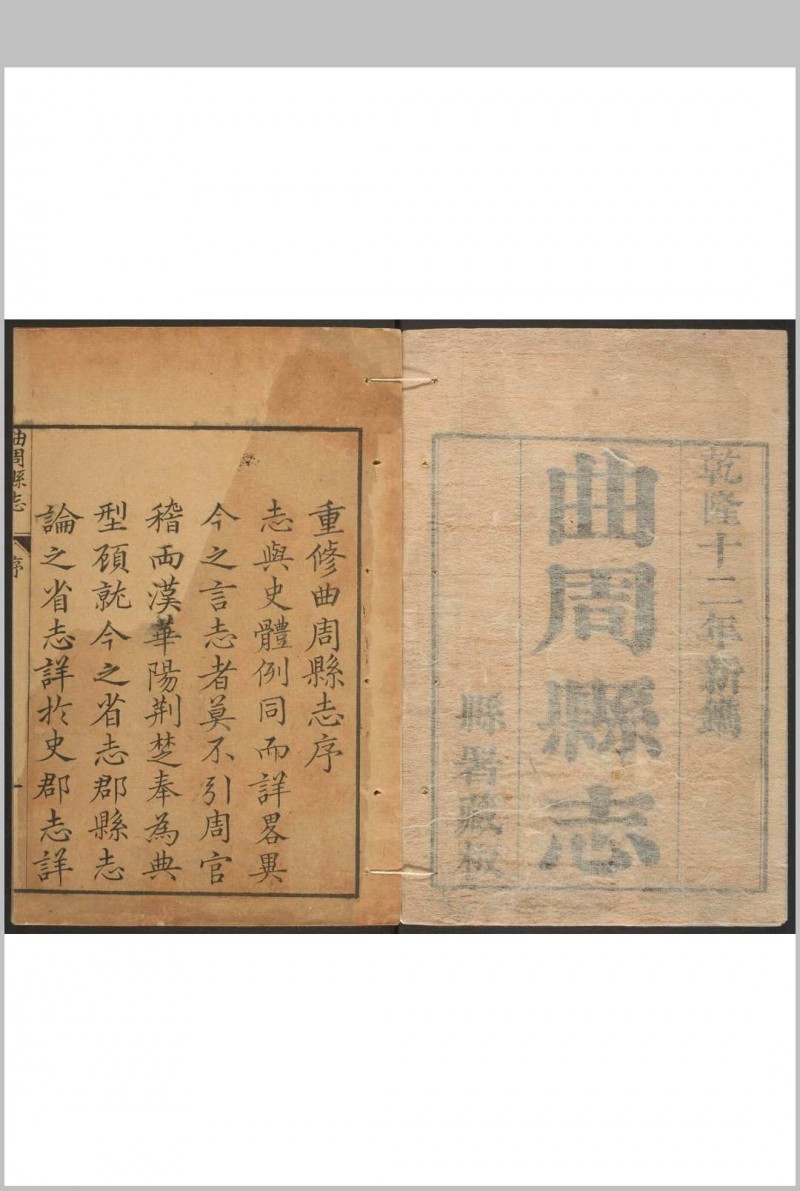 乾隆十二年新鐫
曲周縣志
縣署藏板
重修曲周縣志序
志與史體例同而詳畧異
今之言志者莫不引周官
稽兩漢華陽荆楚奉為典
型顧就今之省志郡縣志
論之省志詳於史郡志詳
曲周縣志
序